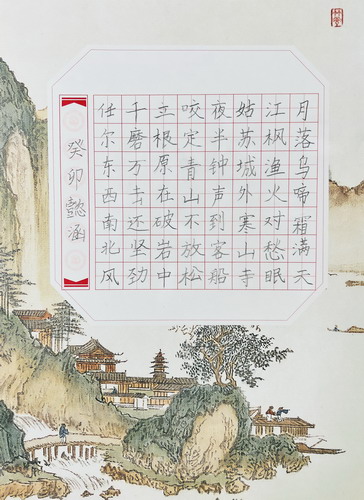 月落乌啼霜满天
江枫渔火对愁眠
姑苏城外寒山寺
夜半钟声到客船
咬定青山不放松
立根原在破岩中
千磨万击还坚劲
任尔东西南北风
癸卯懿涵